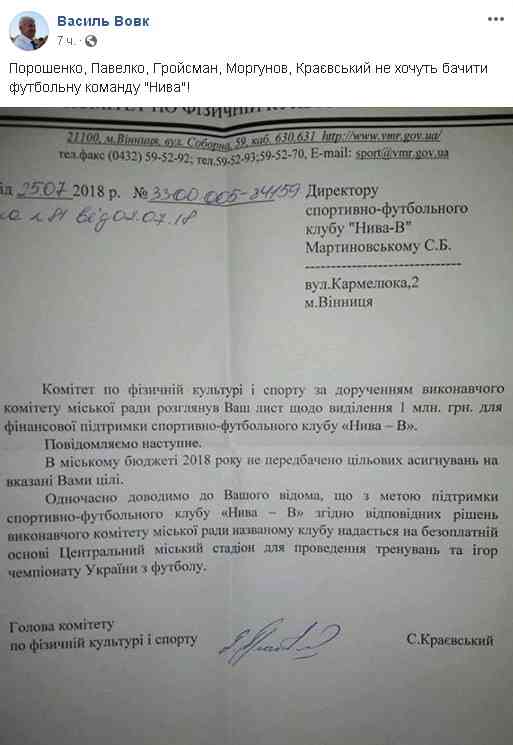 Василь Вовк
7 ч. ·
Порошенко, Павелко, Гройсман, Моргунов, Краєвський не хочуть бачити
футбольну команду "Нива"!
21100, м.Вінниця, вул. Соборна, 59, каб. 630,631 http://www.vmr.gov.ua/
тел.факс (0432) 59-52-92; тел.59-52-93;59-52-70, E-mail: sport@vmr.gov.ua
від 2507 2018 р. № 3300 005-34159
на л 81 від 02.07.18
Директору
спортивно-футбольного
клубу "Нива-В"
Мартиновському С.Б.
------------------------------
вул.Кармелюка,2
м.Вінниця
Комітет по фізичній культурі і спорту за дорученням виконавчого
комітету міської ради розглянув Ваш лист щодо виділення 1 млн. грн. для
фінансової підтримки спортивно-футбольного клубу «Нива – В».
Повідомляємо наступне.
В міському бюджеті 2018 року не передбачено цільових асигнувань на
вказані Вами цілі.
Одночасно доводимо до Вашого відома, що з метою підтримки
спортивно-футбольного клубу «Нива – В» згідно відповідних рішень
виконавчого комітету міської ради названому клубу надається на безоплатній
основі Центральний міський стадіон для проведення тренувань та ігор
чемпіонату України з футболу.
Голова комітету
по фізичній культурі і спорту
С.Краєвський